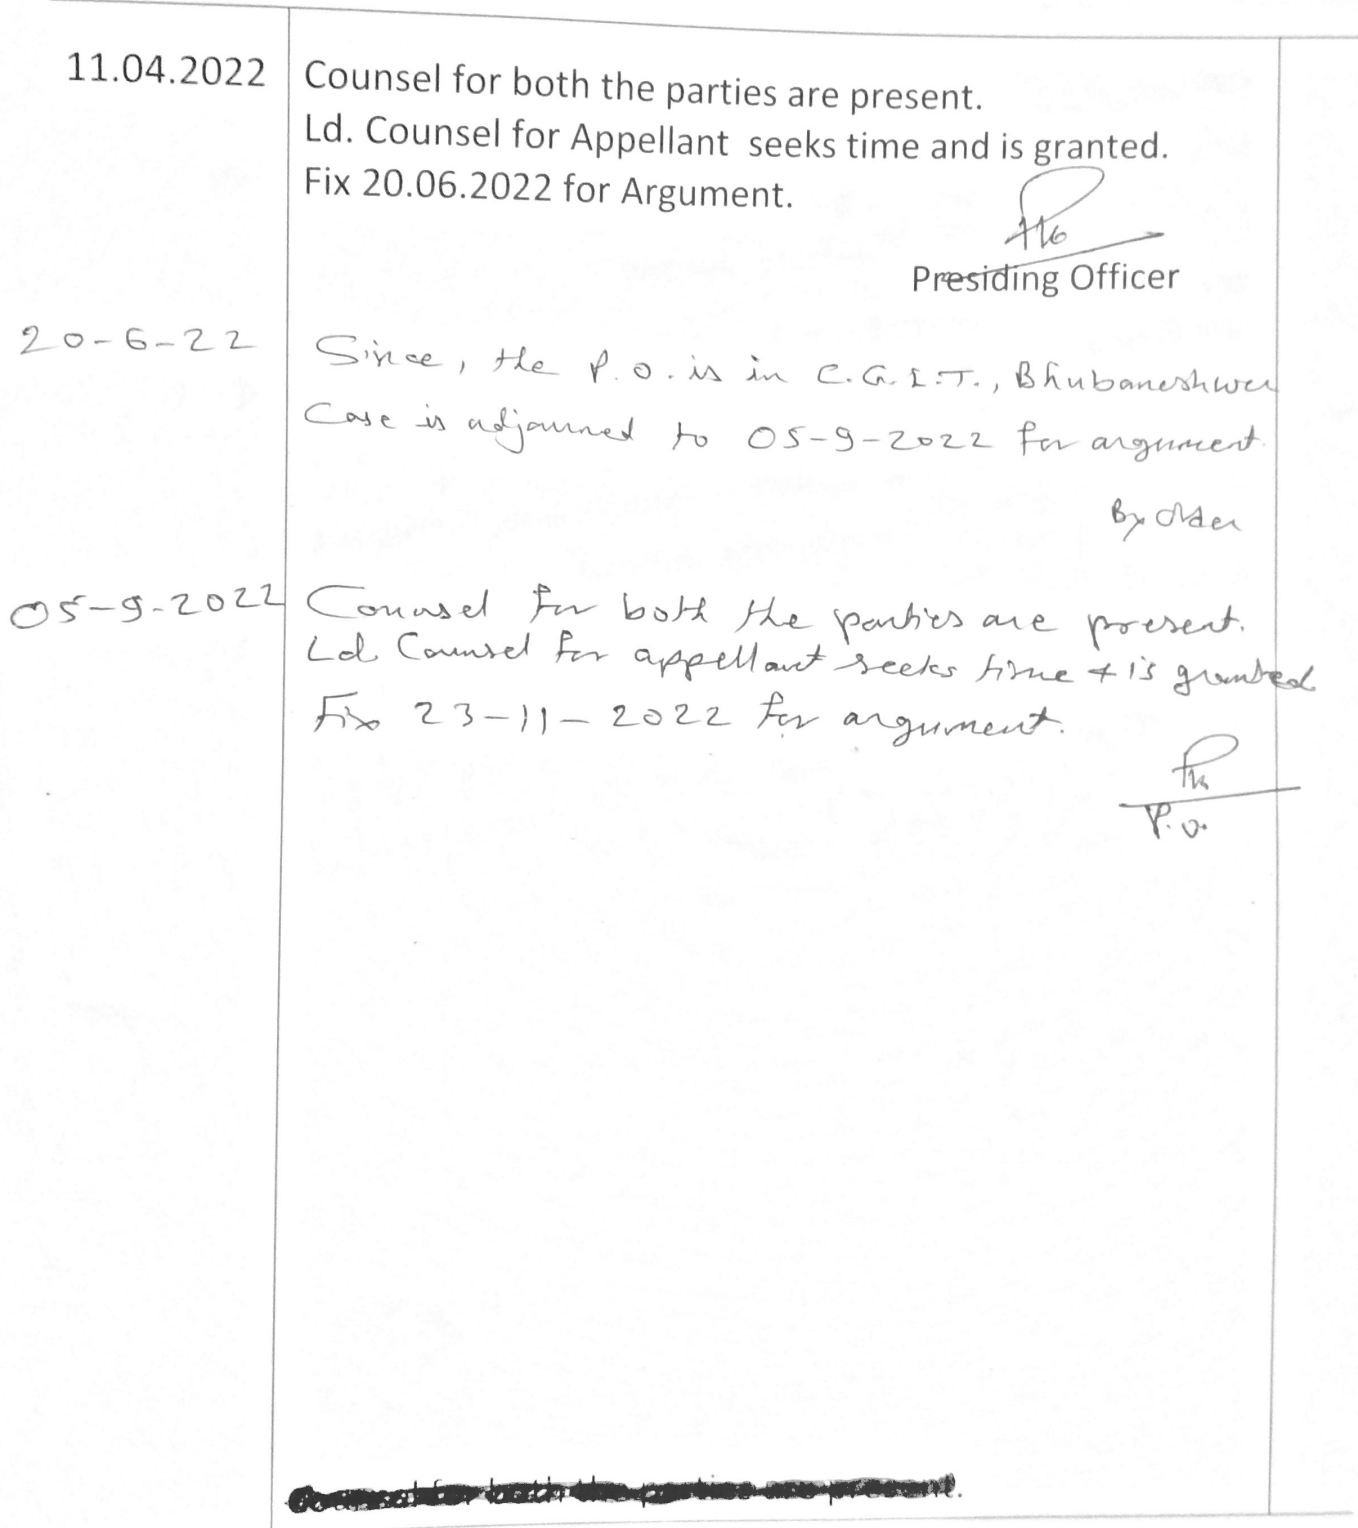 11.04.2022 Counsel for both the parties are present.
Ld. Counsel for Appellant seeks time and is granted.
Fix 20.06.2022 for Argument.
Presiding Officer
20-6-22 Since, the P.O. is in C.G.I.T., Bhubaneshwer
Case is adjourned to 05-9-2022 for argument.
By order
05-9-2022 Counsel for both the parties are present.
Ld. Counsel for appellant seeks time + is granted
Fix 23-11-2022 for argument.
P.O.
Counsel for both the parties are present.